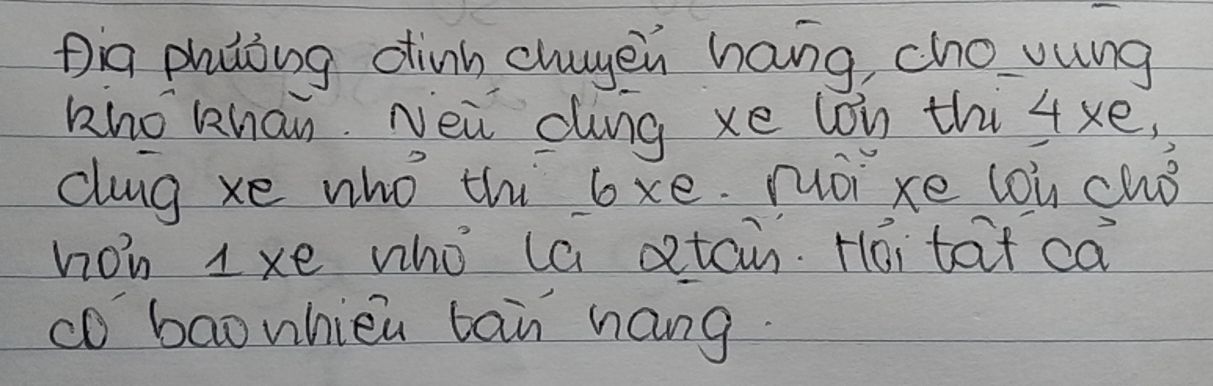 Địa phương định chuyển hàng, cho vùng
khó khăn. Nếu dùng xe lớn thì 4 xe,
dùng xe nhỏ thì 6 xe. Mỗi xe lớn chở
hơn 1 xe nhỏ là 2 tấn. Hỏi tất cả
có bao nhiêu tấn hàng.